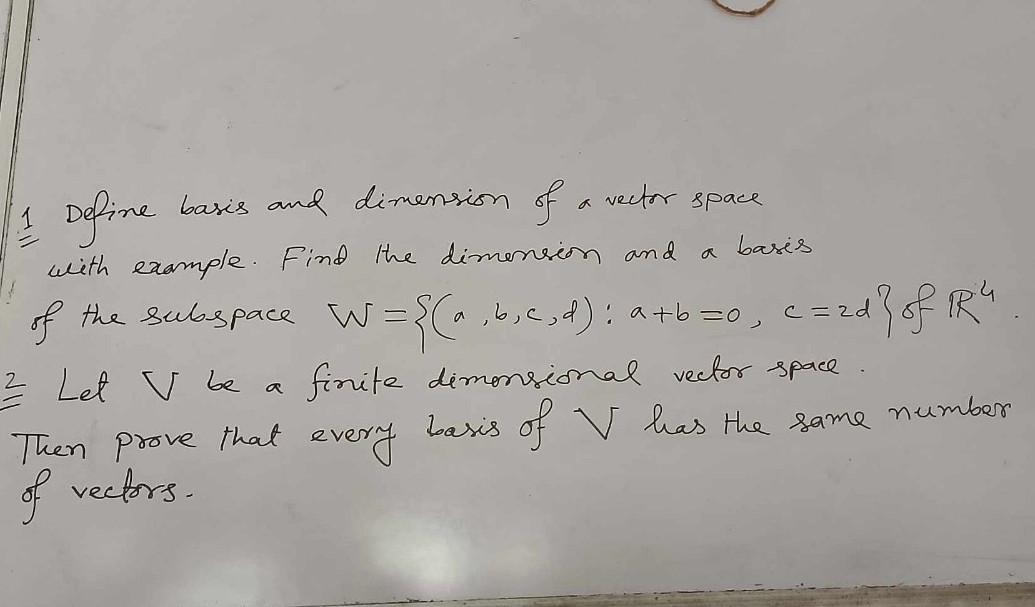 1 Define basis and dimension of a vector space
with example. Find the dimension and a basis
of the subspace W = {(a, b, c, d) : a+b=0, c=2d} of ℝ⁴.
2 Let V be a finite dimensional vector space.
Then prove that every basis of V has the same number
of vectors.